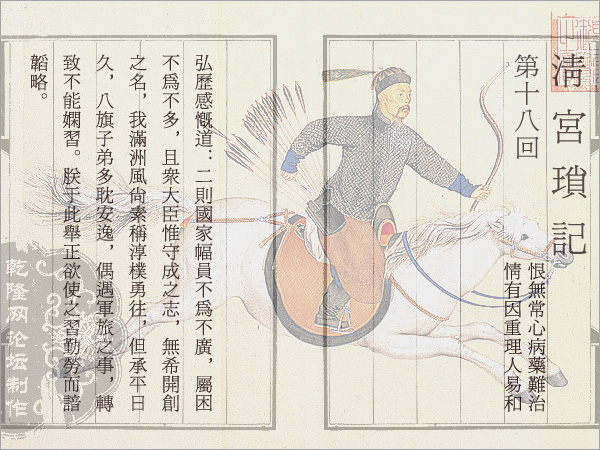 清宮瑣記
第十八回
恨無常心病藥難治
情有因重理人易和
弘歷感慨道：二則國家幅員不爲不廣，屬困
不爲不多，且衆大臣惟守成之志，無希開創
之名，我滿洲風尙素稱淳樸勇往，但承平日
久，八旗子弟多耽安逸，偶遇軍旅之事，轉
致不能嫻習。朕于此舉正欲使之習勤勞而諳
韜略。
乾隆网论坛制作